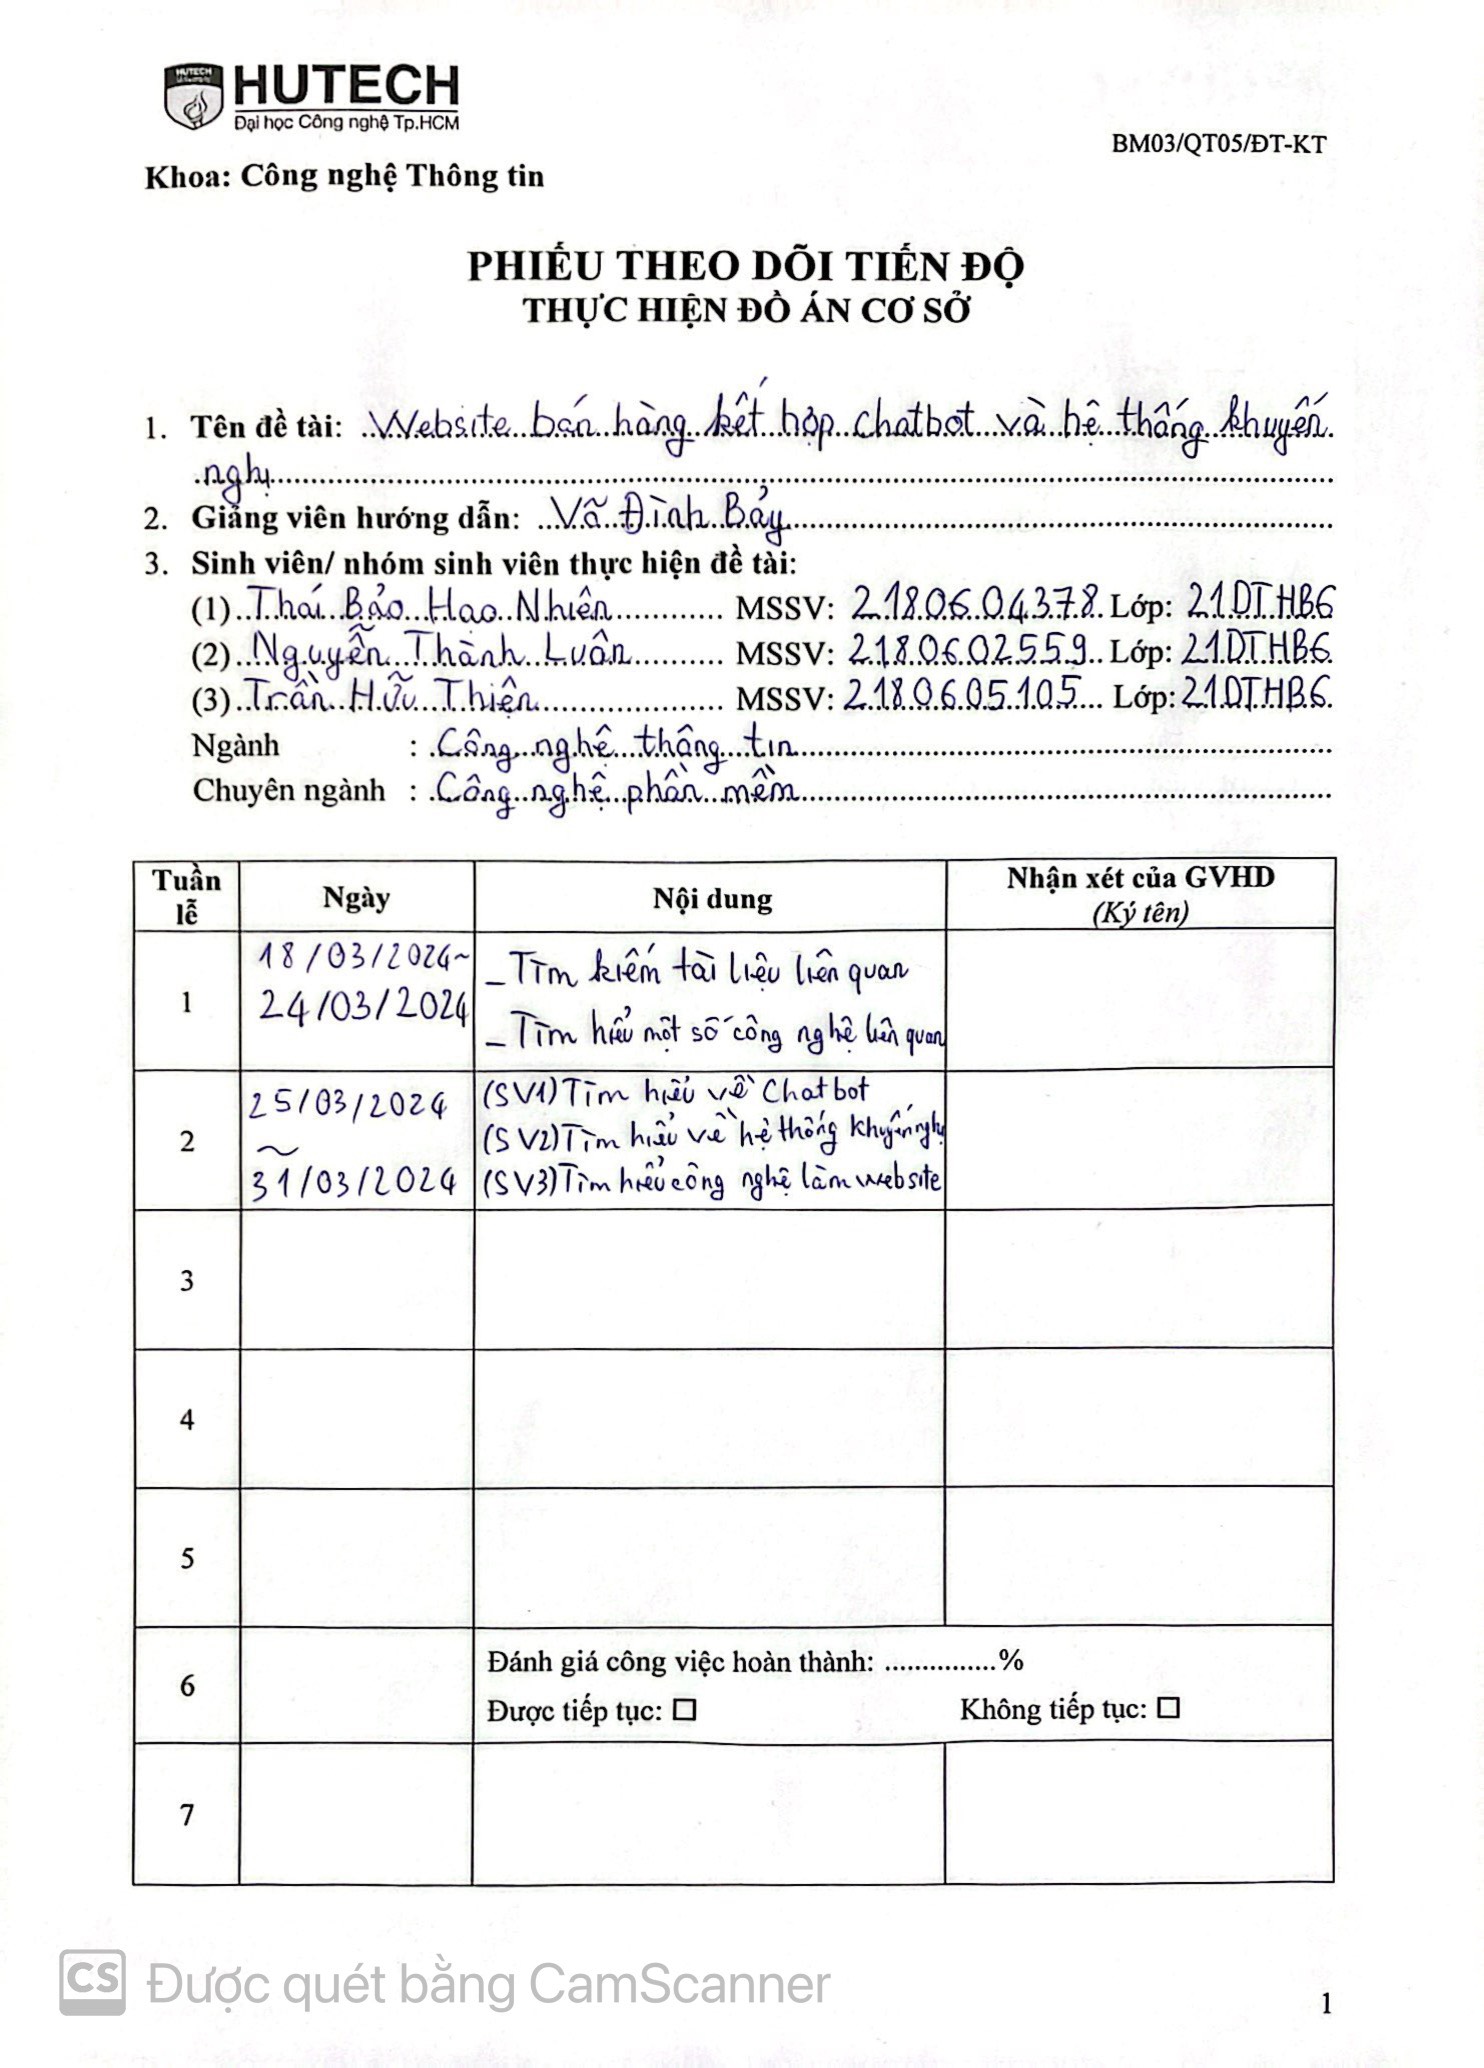 HUTECH
HUTECH
Đại học Công nghệ Tp.HCM
BM03/QT05/ĐT-KT
Khoa: Công nghệ Thông tin
PHIẾU THEO DÕI TIẾN ĐỘ
THỰC HIỆN ĐỒ ÁN CƠ SỞ
1. Tên đề tài: Website bán hàng kết hợp chatbot và hệ thống khuyến
nghị
2. Giảng viên hướng dẫn: Võ Đình Bảy
3. Sinh viên/ nhóm sinh viên thực hiện đề tài:
(1) Thái Bảo Hạo Nhiên MSSV: 2180604378 Lớp: 21DTHB6
(2) Nguyễn Thành Luân MSSV: 2180602559 Lớp: 21DTHB6
(3) Trần Hữu Thiện MSSV: 2180605105 Lớp: 21DTHB6
Ngành : Công nghệ thông tin
Chuyên ngành : Công nghệ phần mềm
Tuần lễ Ngày Nội dung Nhận xét của GVHD
(Ký tên)
1 18/03/2024~ - Tìm kiếm tài liệu liên quan
24/03/2024 - Tìm hiểu một số công nghệ liên quan
2 25/03/2024 (SV1) Tìm hiểu về Chatbot
~ (SV2) Tìm hiểu về hệ thống khuyến nghị
31/03/2024 (SV3) Tìm hiểu công nghệ làm website
3
4
5
6 Đánh giá công việc hoàn thành: ...............%
Được tiếp tục: ☐ Không tiếp tục: ☐
7
CS Được quét bằng CamScanner
1